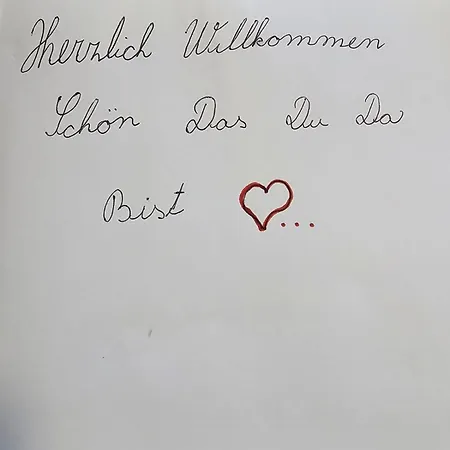 Herzlich Willkommen
Schön Das Du Da
Bist ♥...